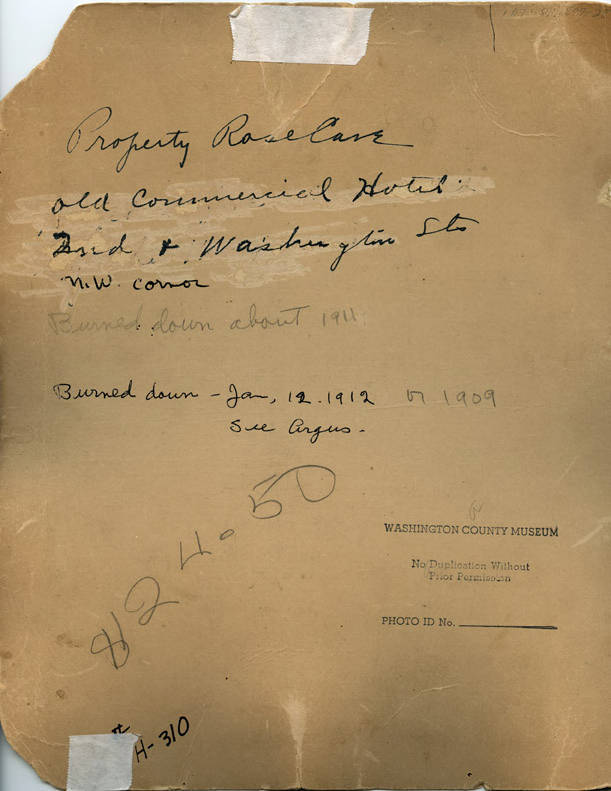 Property Rose Cave
old Commercial Hotel
2nd & Washington Sts
N.W. corner
Burned down about 1911
Burned down - Jan, 12. 1912 or 1909
See Argus.
824-50
WASHINGTON COUNTY MUSEUM
No Duplication Without
Prior Permission
PHOTO ID No.
H-310